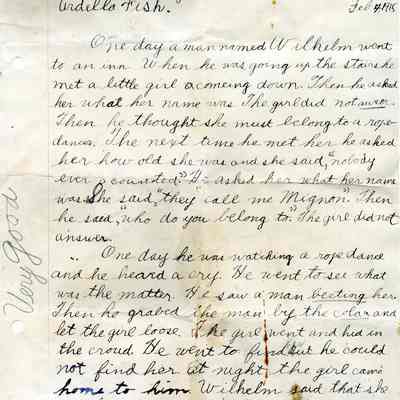 Ardella Fish.
Feb 4, 1915
One day a man named Wilhelm went
to an inn. When he was going up the stairs he
met a little girl a comeing down. Then he asked
her what her name was. The girl did not
Then he thought she must belong to a rope
dances. The next time he met her he asked
her how old she was and she said, "nobody
ever counted." He asked her what her name
was. She said, "they call me Mignon." Then
he said, "who do you belong to." The girl did not
answer.
One day he was watching a rope dance
and he heard a cry. He went to see what
was the matter. He saw a man beeting her.
Then he grabed the man by the colar and
let the girl loose. The girl went and hid in
the croud. He went to find but he could
not find her at night the girl came
home to him. Wilhelm said that she
Very good